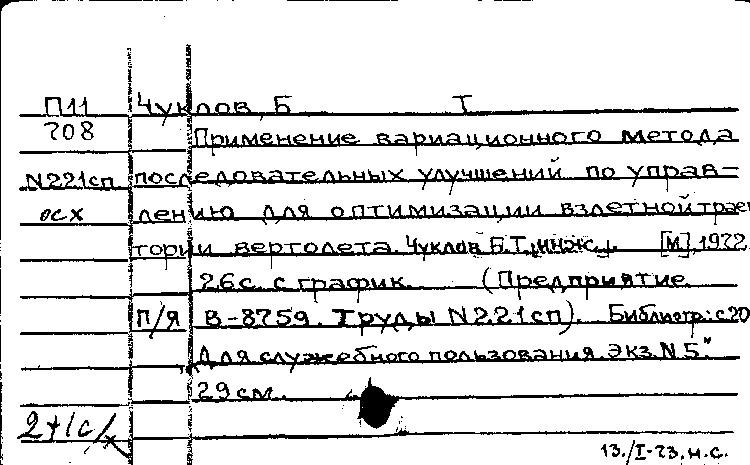 П11 Чуклов, Б Т
708 Применение вариационного метода
N221сп последовательных улучшений по управ-
осх лению для оптимизации взлетной траек
тории вертолета. Чуклов Б.Т., инж., [М], 1972
26с. с график. (Предприятие
П/Я В-8759. Труды N221сп). Библиогр: с20
„Для служебного пользования. Экз. N5."
29см.
2+1с/
13./I-73. н.с.